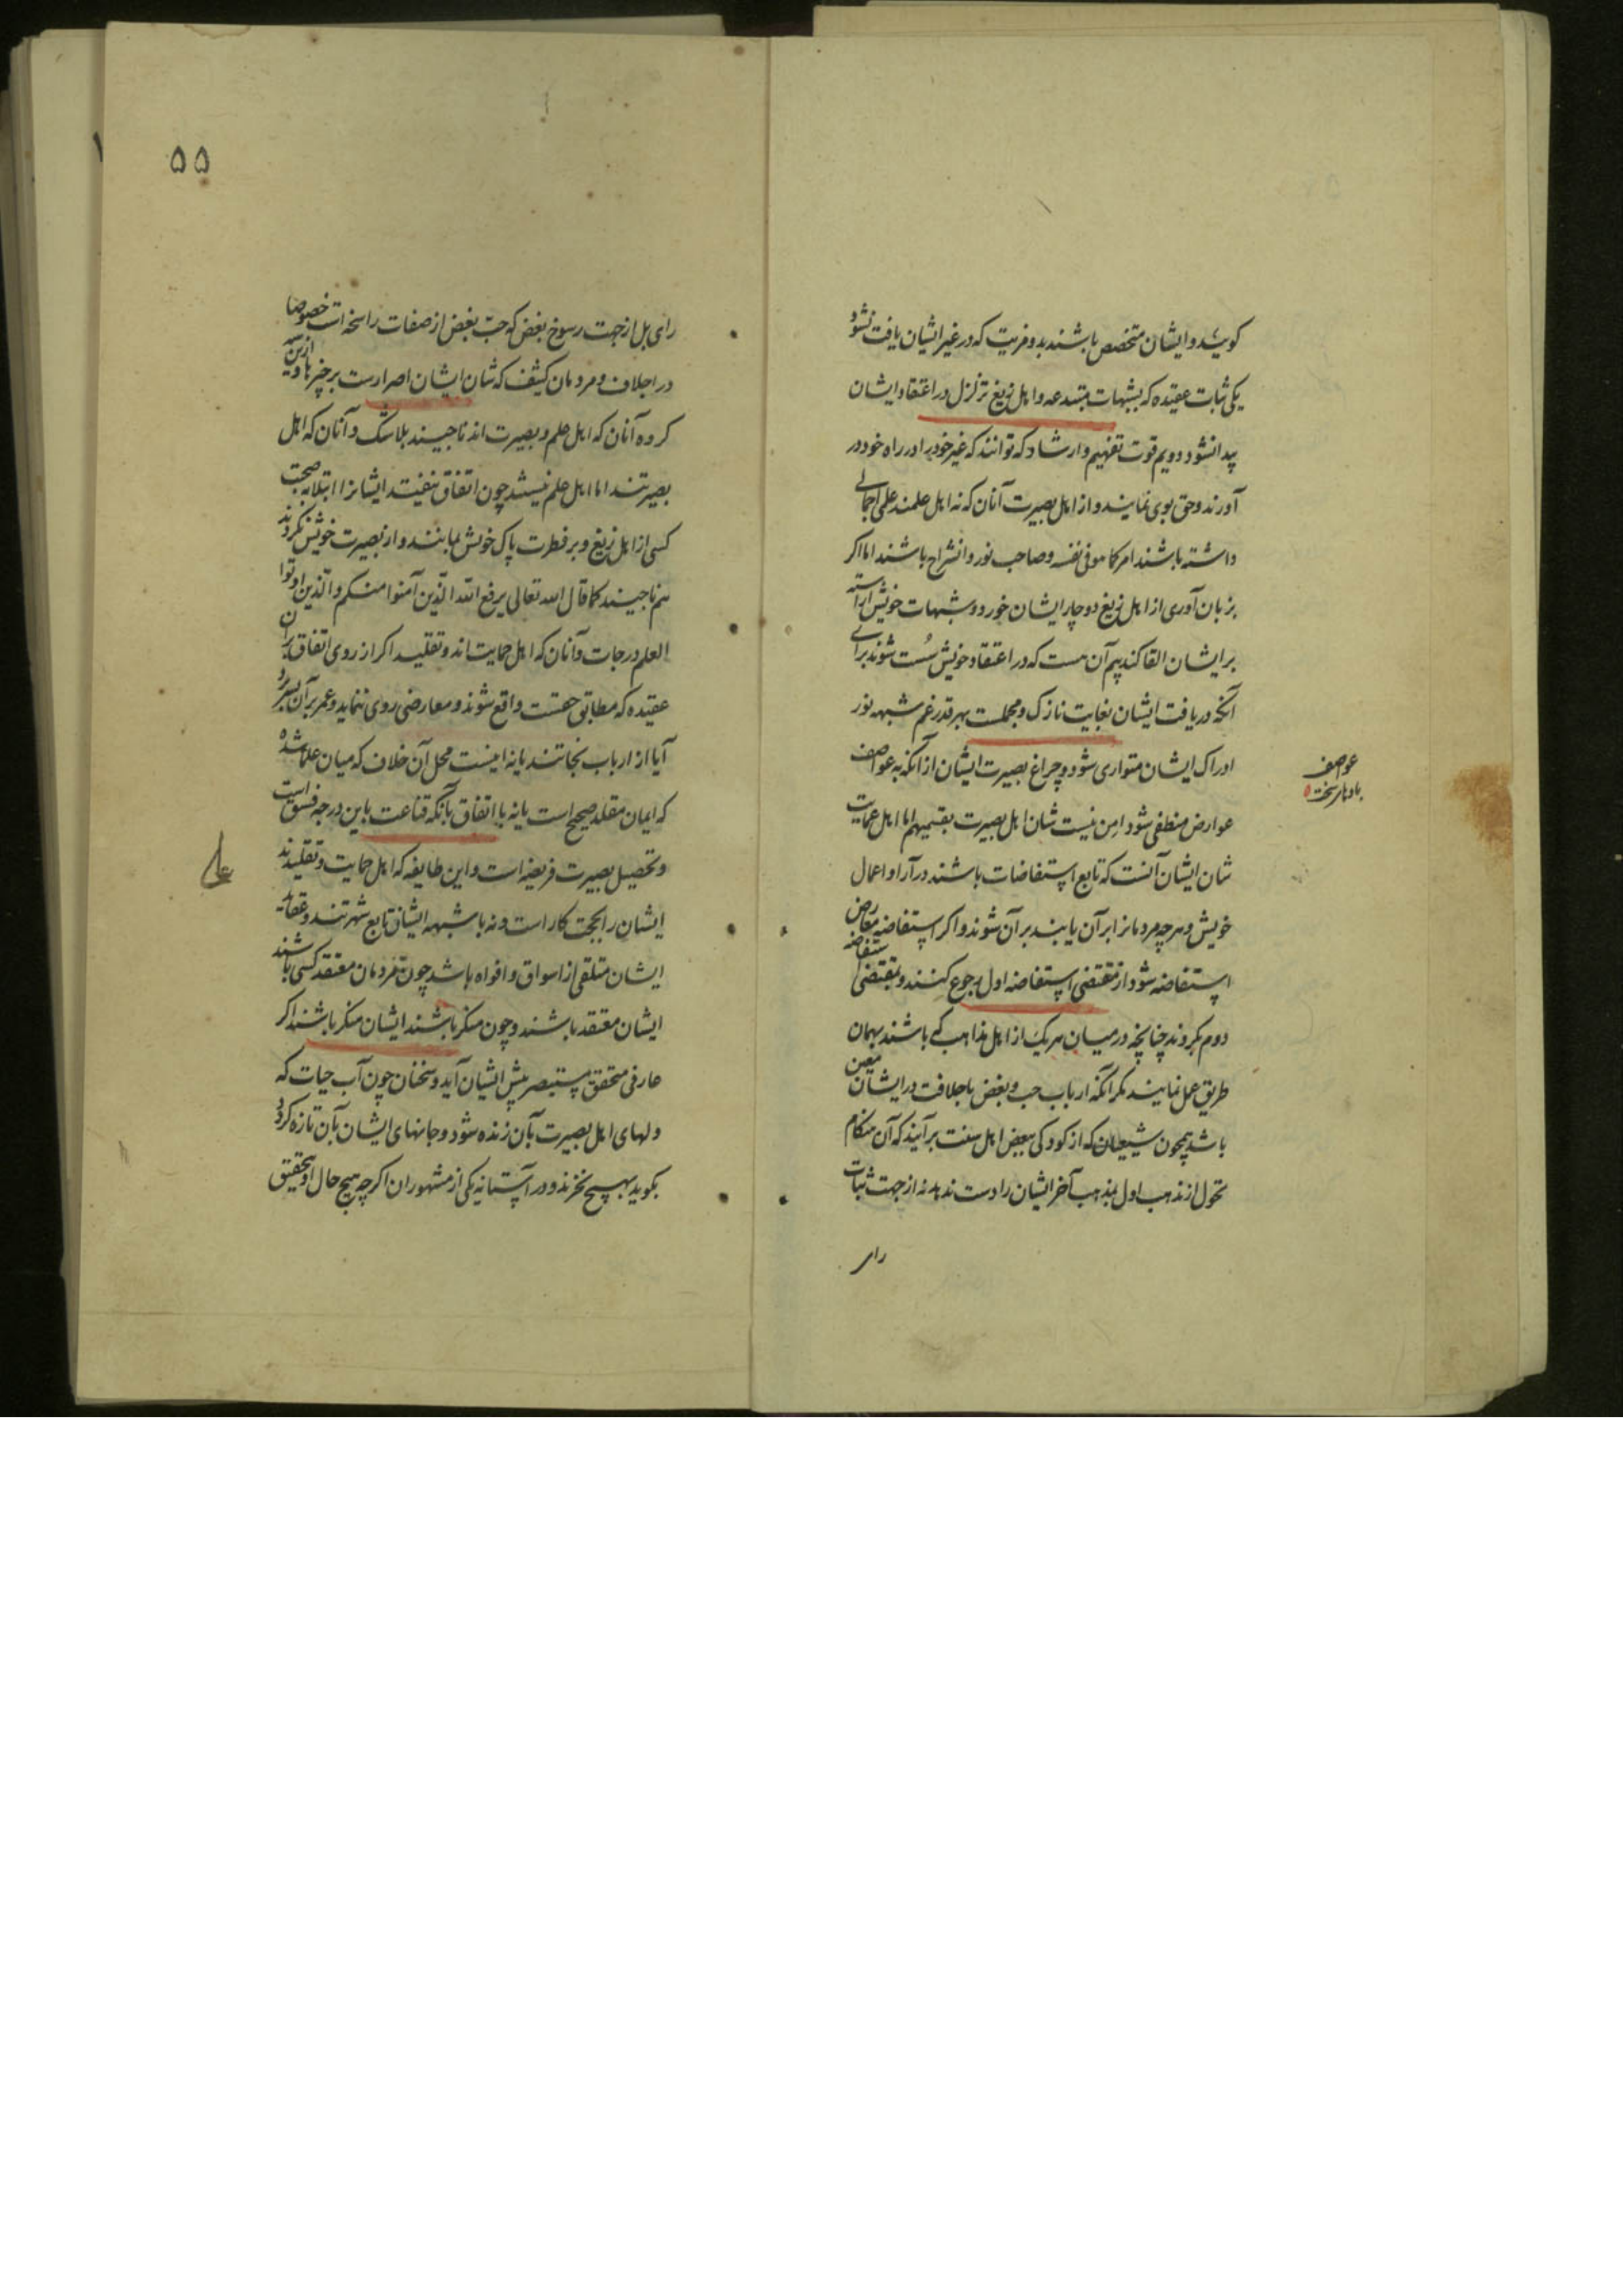 کویند و ایشان متخصص باشند بدو مزیت که در غیر ایشان یافت نشود
یکی ثبات عقیده که بشبهات مبتدعه و اهل زیغ تزلزل در اعتقاد ایشان
پیدا نشود دویم قوت تفهیم و ارشاد که توانند که غیر خود را در راه خود در
آورند و حق بوی نمایند و از اهل بصیرت آنان که نه اهل علمند علمی اجمالی
داشته باشند امر کما هو فی نفسه و صاحب نور و انشراح باشند اما اکر
بزبان آوری از اهل زیغ دوچار ایشان خورد و شبهات خویش آراسته
بر ایشان القا کند بیم آن هست که در اعتقاد خویش سُست شوند برای
آنکه دریافت ایشان بغایت نازک و مجملست بهر قدر غم شبهه نور
ادراک ایشان متواری شود و چراغ بصیرت ایشان از آنکه به عواصف
عوارض منطفی شود امن نیست شان اهل بصیرت بقسمیهم اما اهل عمایت
شان ایشان آنست که تابع استفاضات باشند در آرا و اعمال
خویش و هرچه مردمانرا بر آن یابند بر آن شوند و اکر استفاضه معارض
استفاضه شود از مقتضی استفاضه اول رجوع کنند و بمقتضی استفاضه
دوم بکروند چنانچه در میان هر یک از اهل مذاهب که باشند بهمان
طریق عمل نمایند مکر آنکه ارباب حب و بغض باجلافت در ایشان معین
باشد همچون شیعیان که از کودکی ببغض اهل سنت برآیند که آن هنکام
تحول از مذهب اول بمذهب آخر ایشان را دست ندهد نه از جهت ثبات
رای
عواصف
بادهای سخت
۵۵
رای بل از جهت رسوخ بغض که حبّ بغض از صفات راسخه است خصوصا
در اجلاف و مردمان کثیف که شان ایشان اصرارست بر چیزها و ازین سه
کروه آنان که اهل علم و بصیرت اند ناجیند بلاشک و آنان که اهل
بصیرتند اما اهل علم نیستند چون اتفاق نیفتد ایشانرا ابتلا به صحبت
کسی از اهل زیغ و بر فطرت پاک خویش بمانند و از بصیرت خویش نکردند
هم ناجیند کما قال الله تعالی یرفع الله الّذین آمنوا منکم و الّذین اوتوا
العلم درجات و آنان که اهل عمایت اند و تقلید اکر از روی اتفاق بر آن
عقیده که مطابق حقست واقع شوند و معارضی روی ننماید و عمر بر آن بسر برد
آیا از ارباب نجاتند یا نه اینست محل آن خلاف که میان علما شده
که ایمان مقلد صحیح است یا نه با اتفاق بآنکه قناعت باین درجه فسق است
و تحصیل بصیرت فریضه است و این طایفه که اهل عمایت و تقلیدند
ایشان را بحجت کار است و نه با شبهه ایشان تابع شهرتند و عقاید
ایشان متلقی از اسواق و افواه باشد چون مردمان معتقد کسی باشند
ایشان معتقد باشند و چون منکر باشند ایشان منکر باشند اکر
عارفی محقق مستبصر پیش ایشان آید و سخنان چون آب حیات که
دلهای اهل بصیرت بآن زنده شود و جانهای ایشان بآن تازه کردد
بکوید بهیچ نخرند و در آستانه یکی از مشهوران اکرچه هیچ حال او بتحقیق
علی